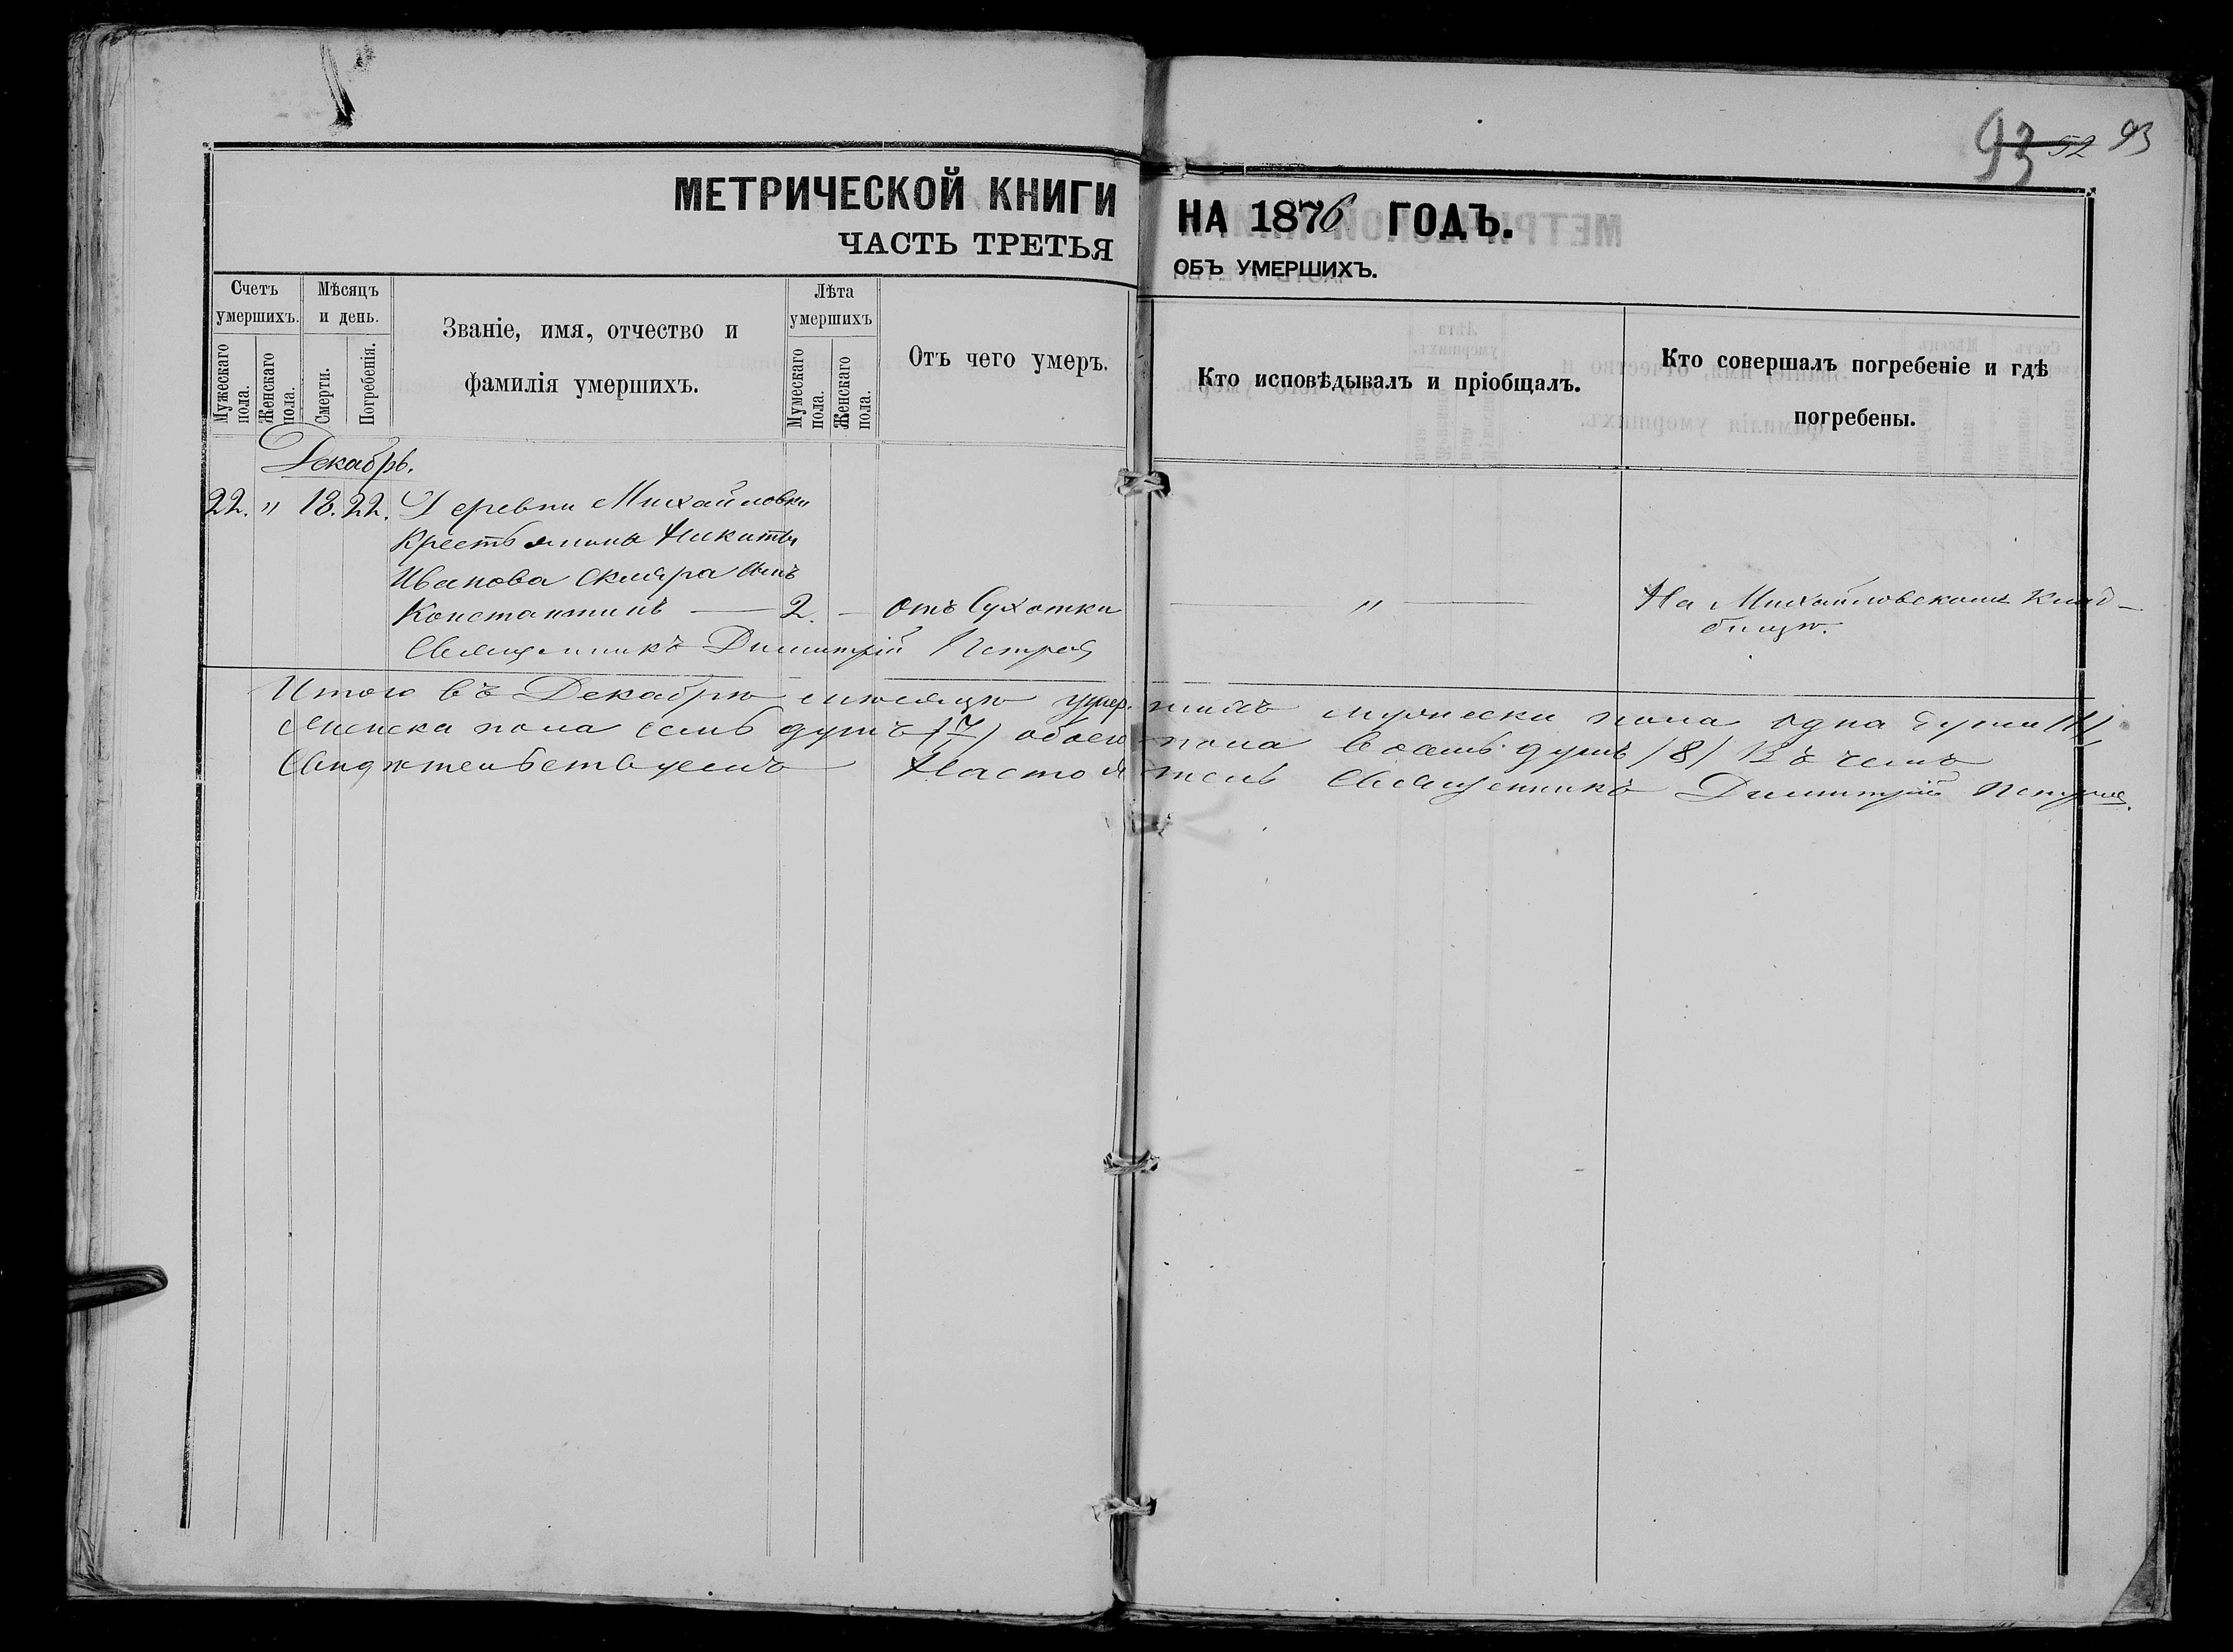 93 52 93
МЕТРИЧЕСКОЙ КНИГИ НА 1876 ГОДЪ.
ЧАСТЬ ТРЕТЬЯ ОБЪ УМЕРШИХЪ.
Счетъ умершихъ.
Мужескаго пола.
Женскаго пола.
Мѣсяцъ и день.
Смерти.
Погребенія.
Званіе, имя, отчество и
фамилія умершихъ.
Лѣта умершихъ
Мужескаго пола.
Женскаго пола.
Отъ чего умеръ.
Кто исповѣдывалъ и пріобщалъ.
Кто совершалъ погребеніе и гдѣ
погребены.
Декабрь.
22. " 18. 22. Деревни Михайловки
Крестьянина Никиты
Иванова Скляра сынъ
Константинъ — 2. — отъ Сухотки — " — На Михайловскомъ Клад-
бищѣ.
Священникъ Димитрій
Итого въ Декабрѣ мѣсяцѣ умер-шихъ мужеска пола одна душа /1/
женска пола семь душъ /7/ обоего пола восемь душъ /8/ Въ чемъ
Свидѣтельствуемъ Настоятель Священникъ Димитрій